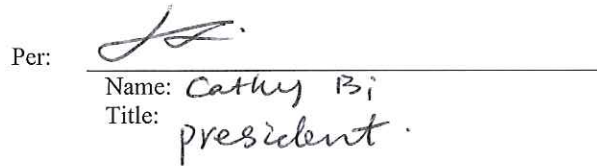 Per:
Name: Cathy Bi
Title:
president.